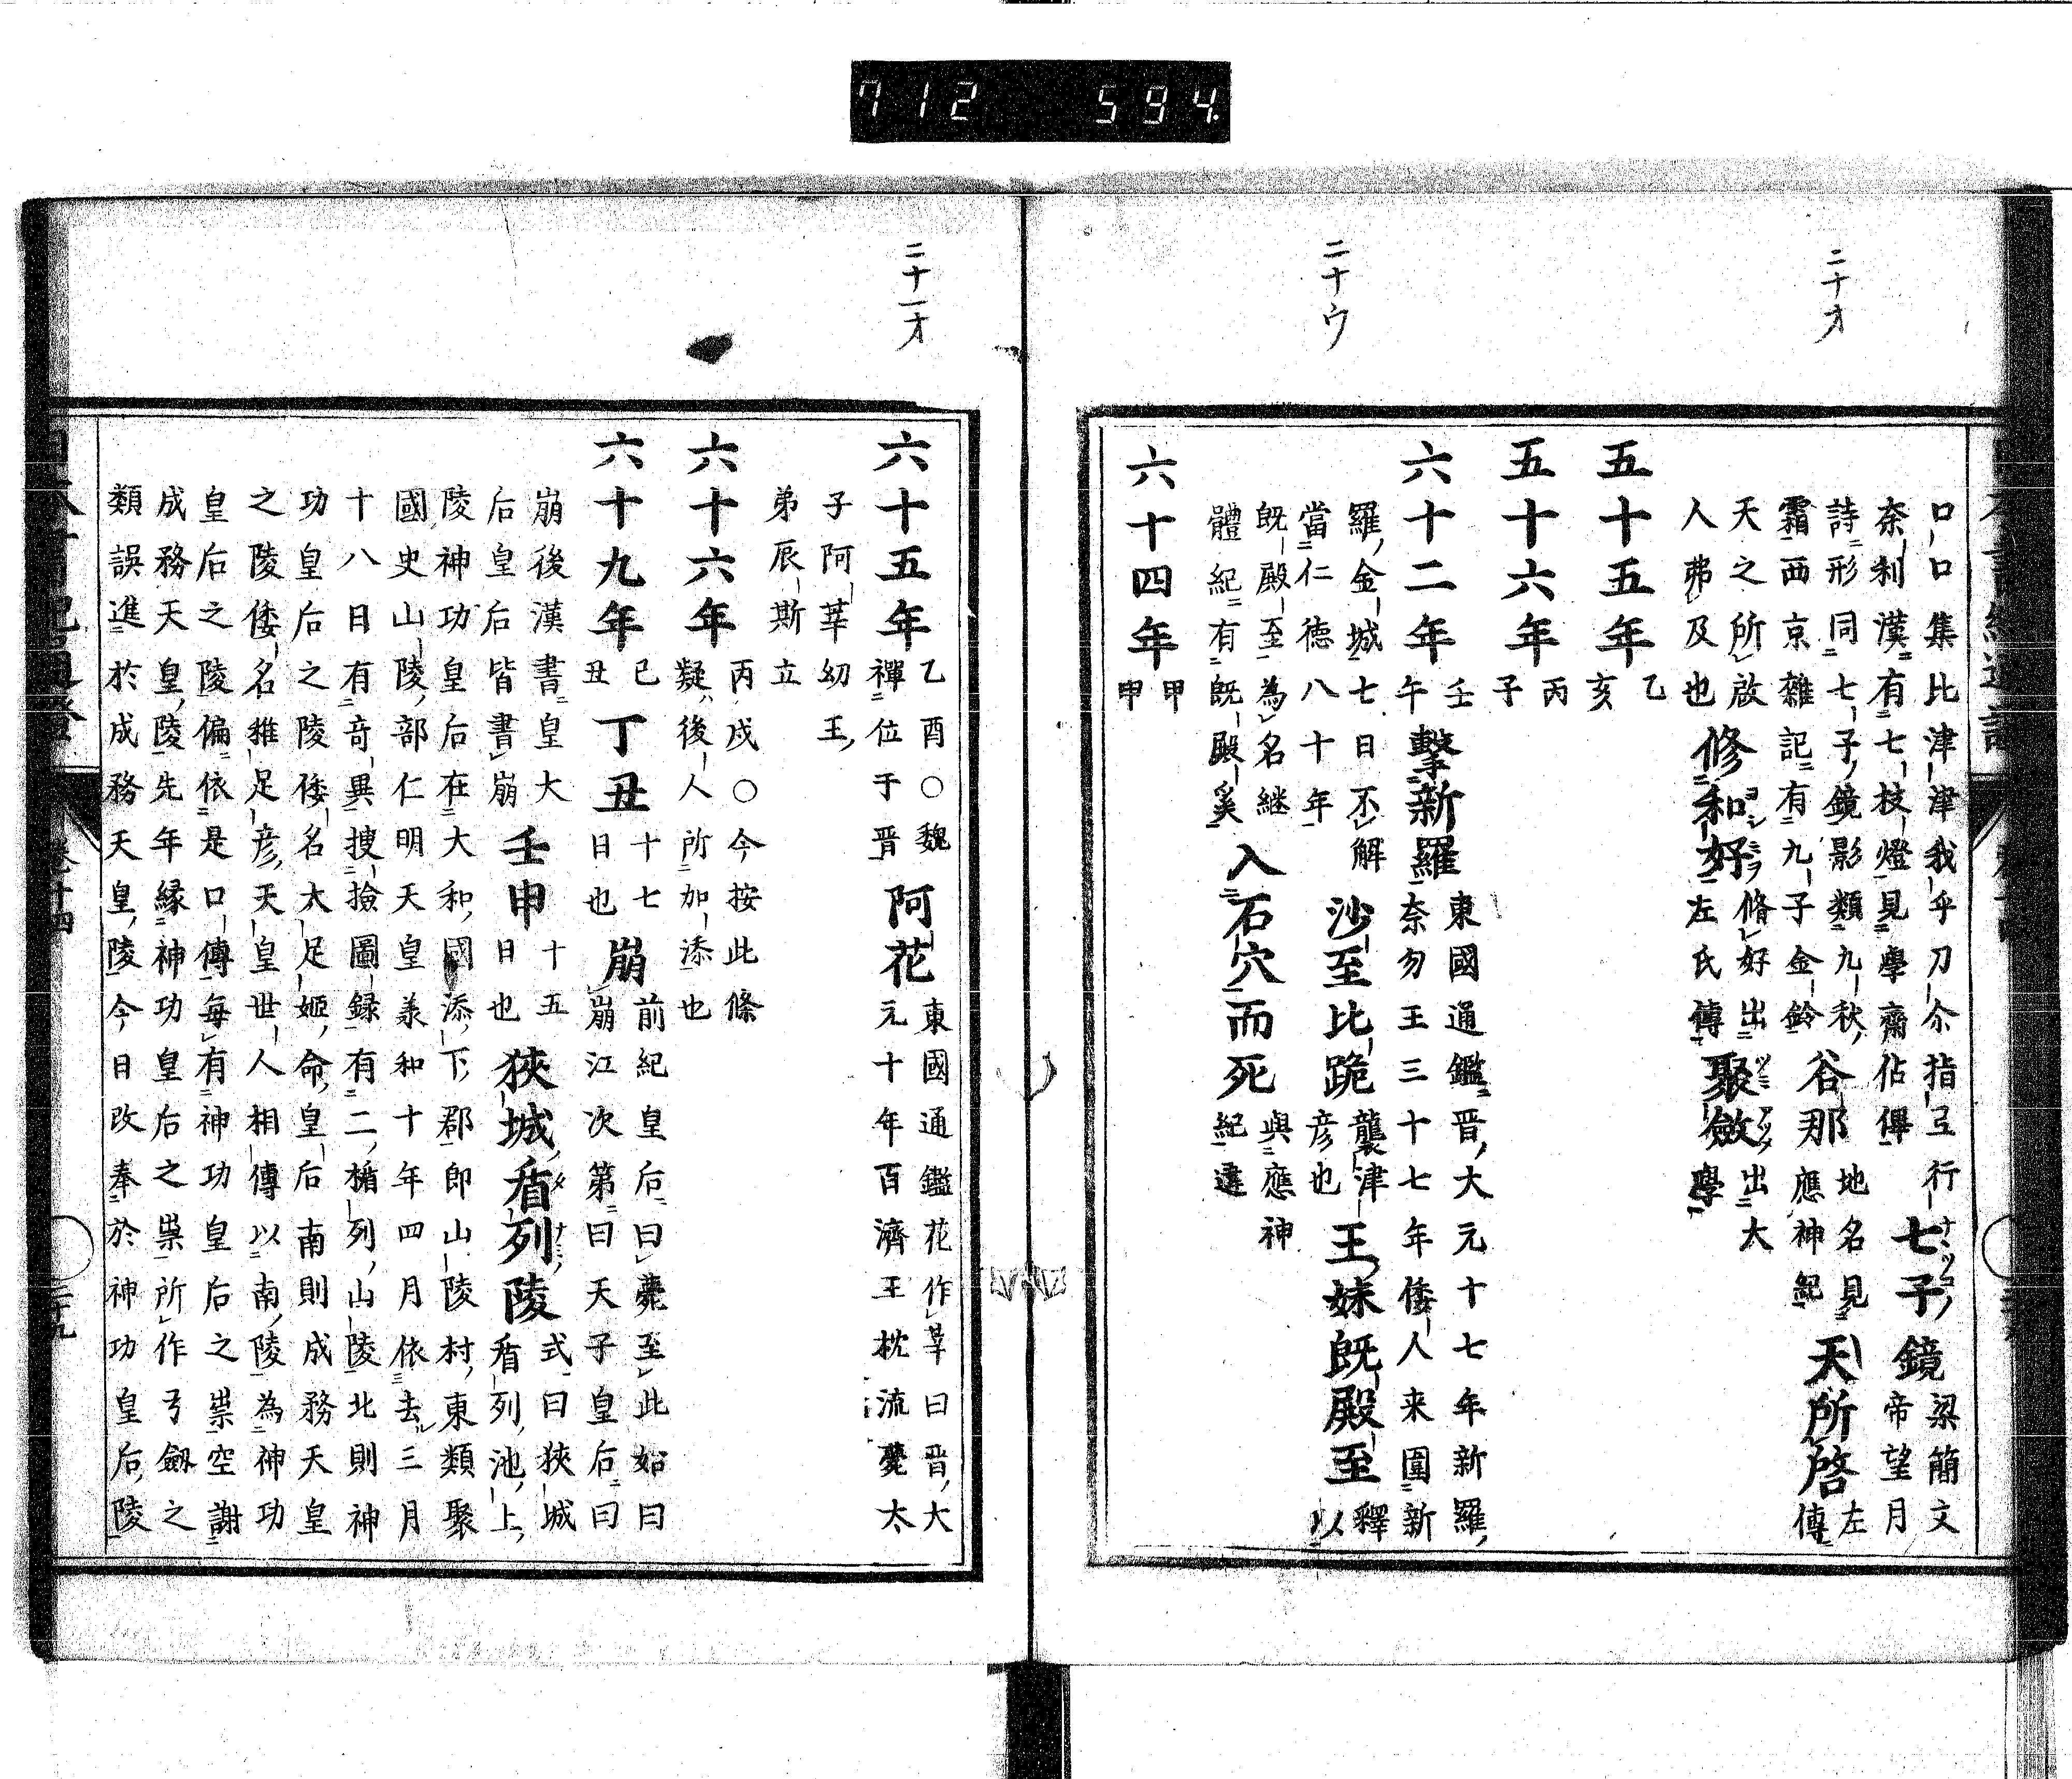 712 594.
二十オ
二十ウ
二十一オ
口口集比津津我乎刀尒指弖行
奈利漢有七枝燈見學齋佔俾
七子鏡
ナヽツコ
梁簡文
帝望月
詩形同七子鏡影類九秋
霜西京雜記有九子金鈴
谷那
地名見
應神紀
天所啓
左
傳
天之所啟
人弗及也
修和好
ヨシミヲ
脩好出
左氏傳
聚斂
出大
學
五十五年
乙
亥
五十六年
丙
子
六十二年
壬
午
擊新羅
東國通鑑晋大元十七年新羅
奈勿王三十七年倭人来圍新
羅金城七日不解
當仁德八十年
沙至比跪
龍襲津
彦也
王妹既殿至
釋
以
既殿至為名継
體紀有既殿奚
入石穴而死
與應神
紀違
六十四年
甲
申
六十五年
乙酉○魏
禪位于晋
阿花
東國通鑑花作莘曰晋大
元十年百濟王枕流薨太
子阿莘幼王
弟辰斯立
六十六年
丙戌○今按此條
疑後人所加添也
六十九年
己
丑
丁丑
十七
日也
崩
前紀皇后曰薨至此始曰
崩江次第曰天子皇后曰
崩後漢書皇大
后皇后皆書崩
壬申
十五
日也
狹城盾列陵
タヽナミ
式曰狹城
盾列池上
陵神功皇后在大和國添下郡郎山陵村東類聚
國史山陵部仁明天皇義和十年四月依去三月
十八日有竒異捜撿圖録有二楯列山陵北則神
功皇后之陵倭名大足姬命皇后南則成務天皇
之陵倭名稚足彦天皇世人相傳以南陵為神功
皇后之陵偏依是口傳毎有神功皇后之崇空謝
成務天皇陵先年縁神功皇后之祟所作弓劔之
類誤進於成務天皇陵今日改奉於神功皇后陵